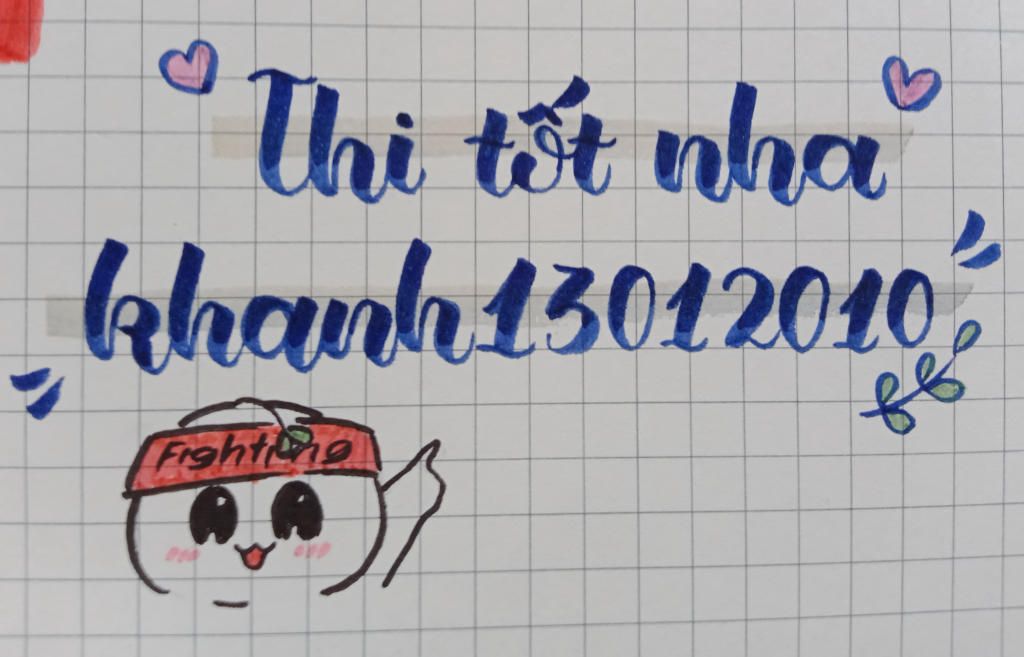 Thi tốt nha
khanh13012010
Fighting